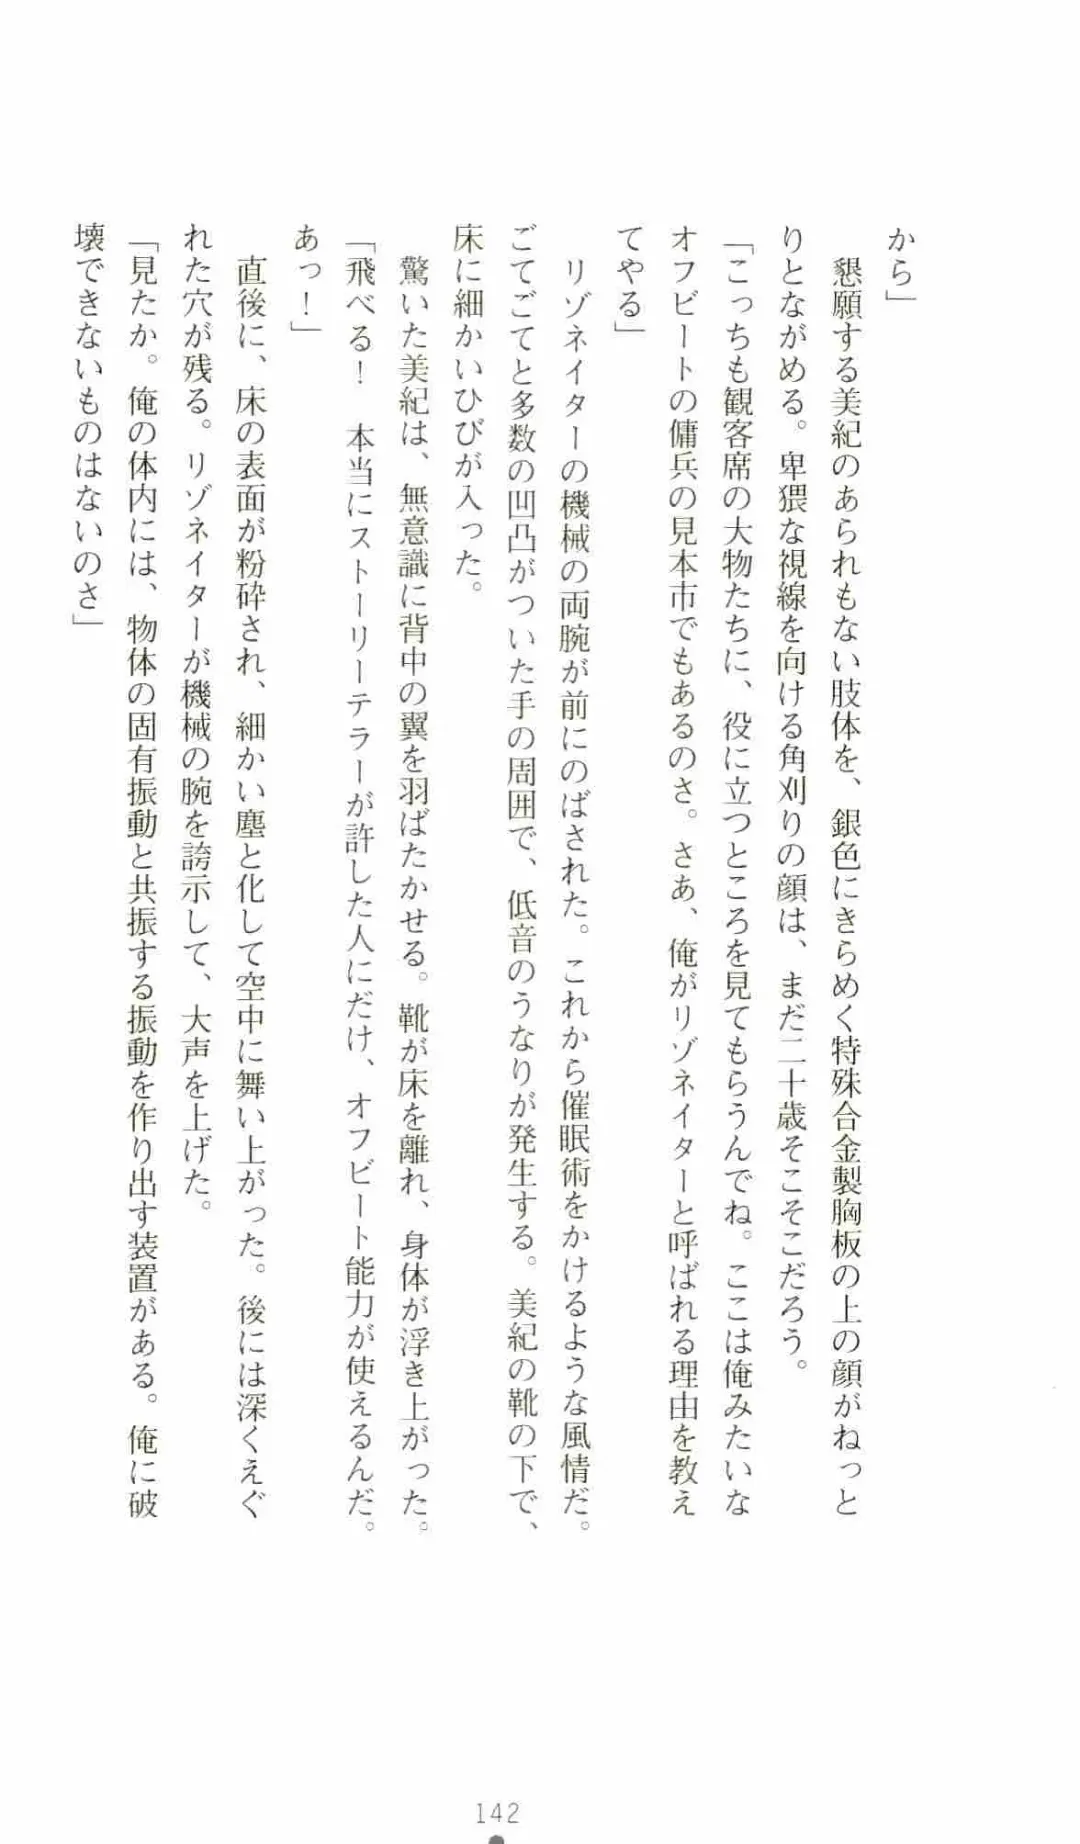 から」
　懇願する美紀のあられもない肢体を、銀色にきらめく特殊合金製胸板の上の顔がねっと
りとながめる。卑猥な視線を向ける角刈りの顔は、まだ二十歳そこそこだろう。
「こっちも観客席の大物たちに、役に立つところを見てもらうんでね。ここは俺みたいな
オフビートの傭兵の見本市でもあるのさ。さあ、俺がリゾネイターと呼ばれる理由を教え
てやる」
　リゾネイターの機械の両腕が前にのばされた。これから催眠術をかけるような風情だ。
ごてごてと多数の凹凸がついた手の周囲で、低音のうなりが発生する。美紀の靴の下で、
床に細かいひびが入った。
　驚いた美紀は、無意識に背中の翼を羽ばたかせる。靴が床を離れ、身体が浮き上がった。
「飛べる！　本当にストーリーテラーが許した人にだけ、オフビート能力が使えるんだ。
あっ！」
　直後に、床の表面が粉砕され、細かい塵と化して空中に舞い上がった。後には深くえぐ
れた穴が残る。リゾネイターが機械の腕を誇示して、大声を上げた。
「見たか。俺の体内には、物体の固有振動と共振する振動を作り出す装置がある。俺に破
壊できないものはないのさ」
142